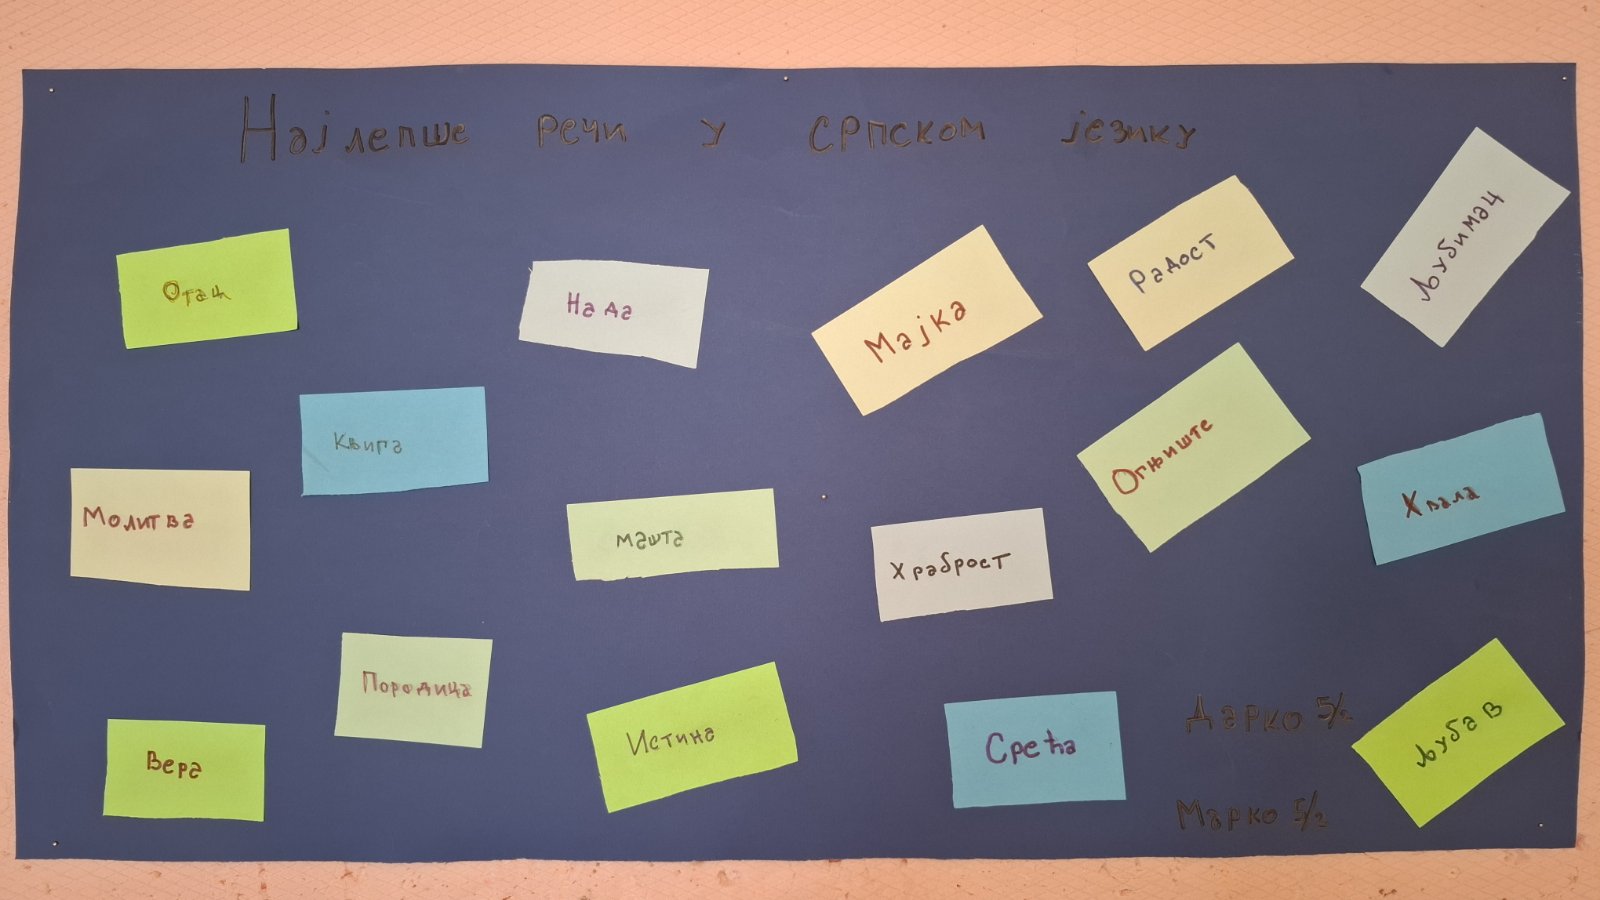 Најлепше речи у српском језику
Отац
Нада
Мајка
Радост
Љубимац
Књига
Огњиште
Молитва
машта
Храброст
Хвала
Породица
Вера
Истина
Срећа
Дарко 5/2
Љубав
Марко 5/2